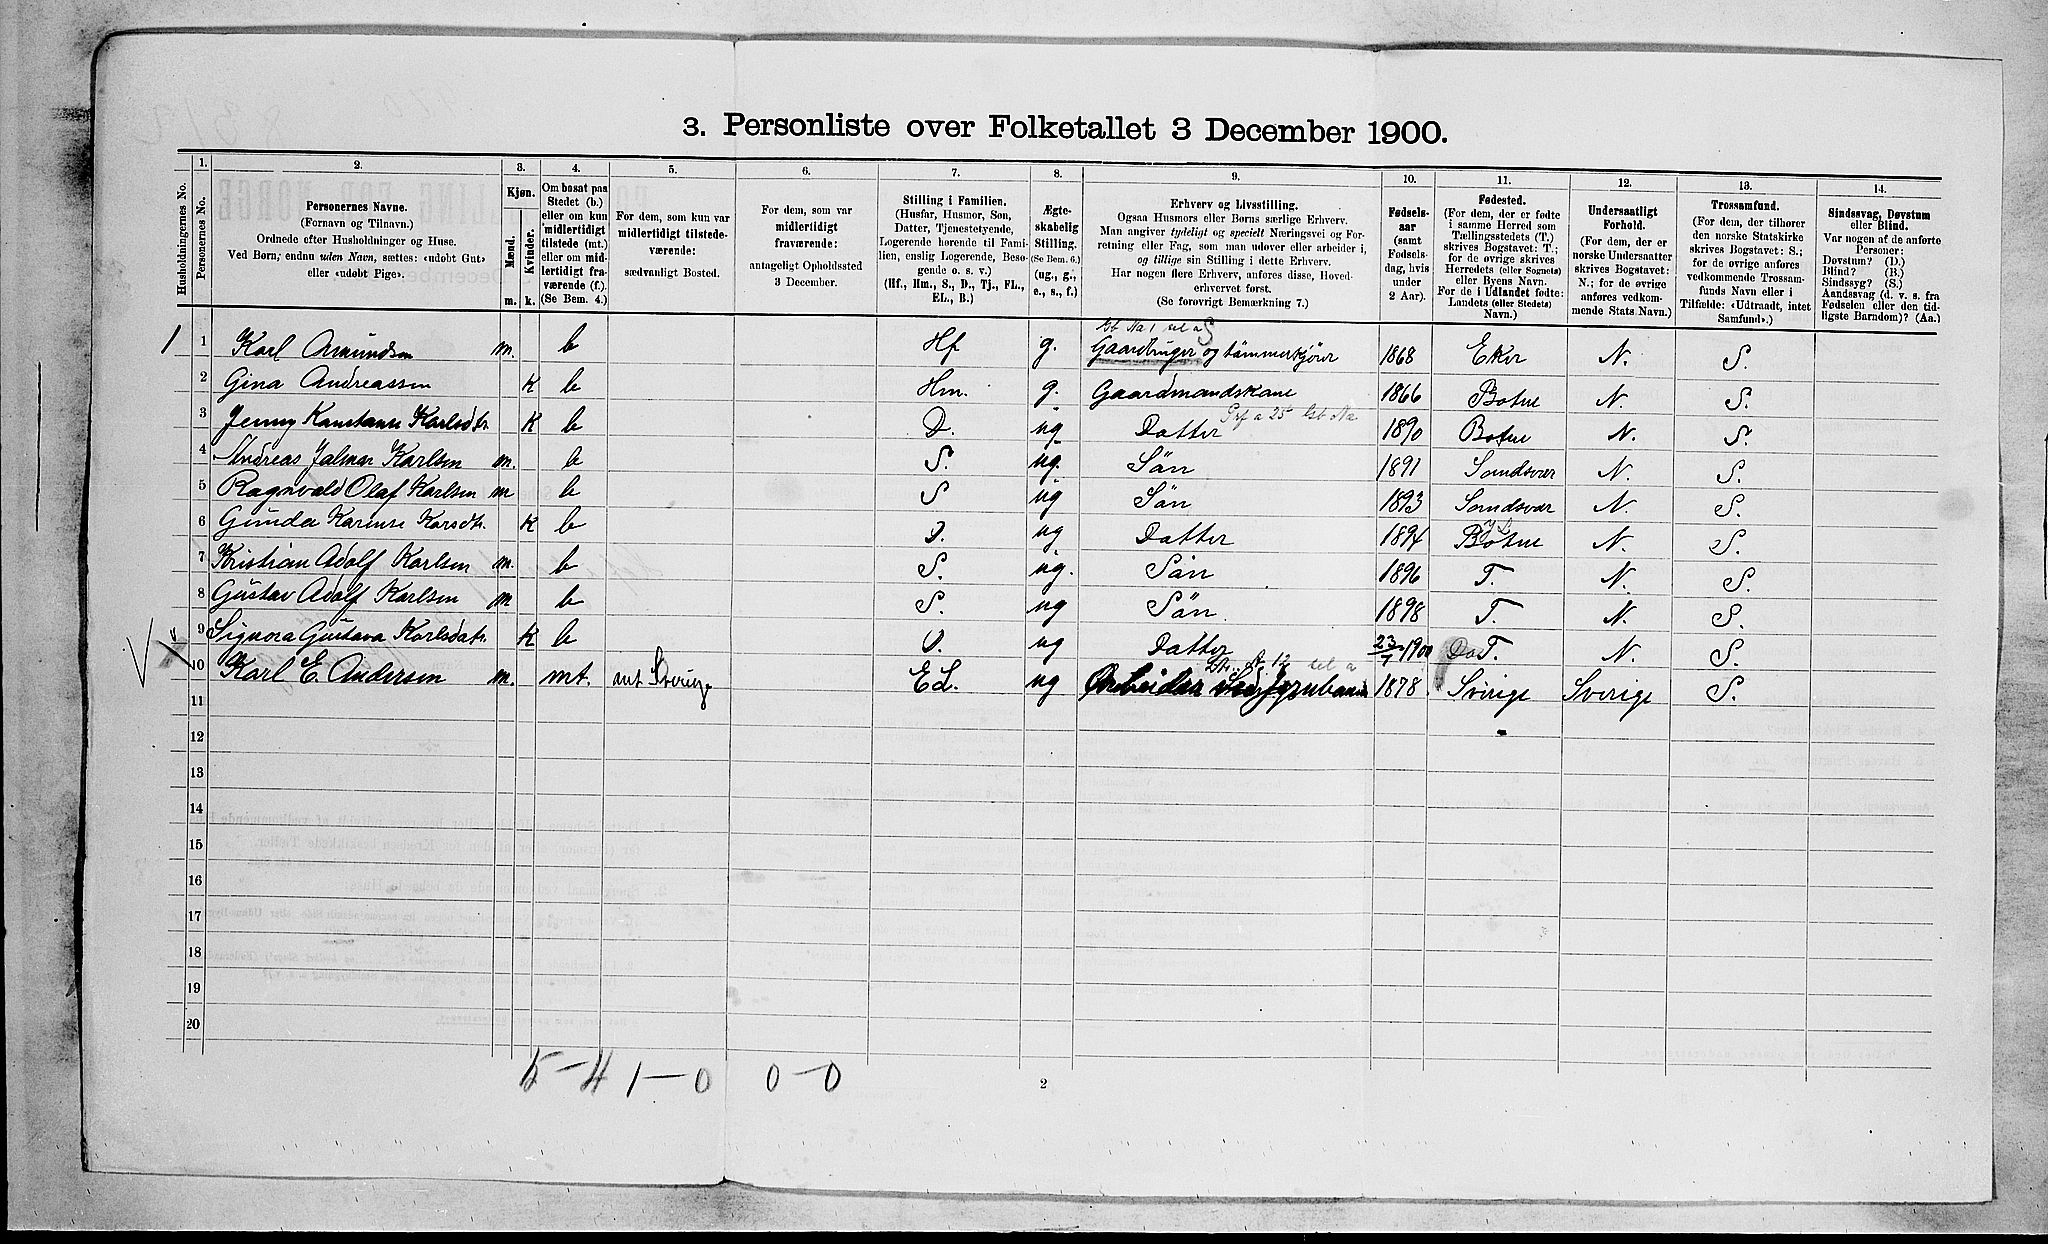 3. Personliste over Folketallet 3 December 1900.
1. 2. 3. 4. 5. 6. 7. 8. 9. 10. 11. 12. 13. 14.
Husholdningernes No.
Personernes No.
Personernes Navne.
(Fornavn og Tilnavn.)
Ordnede efter Husholdninger og Huse.
Ved Børn, endnu uden Navn, sættes: «udøbt Gut»
eller «udøbt Pige».
Kjøn.
Mænd.
Kvinder.
m. k.
Om bosat paa
Stedet (b.)
eller om kun
midlertidigt
tilstede (mt.)
eller om mid-
lertidigt fra-
værende (f.).
(Se Bem. 4.)
For dem, som kun var
midlertidigt tilstede-
værende:
sædvanligt Bosted.
For dem, som var
midlertidigt
fraværende:
antageligt Opholdssted
3 December.
Stilling i Familien.
(Husfar, Husmor, Søn,
Datter, Tjenestetyende,
Logerende hørende til Fami-
lien, enslig Logerende, Besø-
gende o. s. v.)
(Hf., Hm., S., D., Tj., FL.,
EL., B.)
Ægte-
skabelig
Stilling.
(Se Bem. 6.)
(ug., g.,
e., s., f.)
Erhverv og Livsstilling.
Ogsaa Husmors eller Børns særlige Erhverv.
Man angiver tydeligt og specielt Næringsvei og For-
retning eller Fag, som man udøver eller arbeider i,
og tillige sin Stilling i dette Erhverv.
Har nogen flere Erhverv, anføres disse, Hoved-
erhvervet først.
(Se forøvrigt Bemærkning 7.)
Fødsels-
aar
(samt
Fødsels-
dag, hvis
under
2 Aar).
Fødested.
(For dem, der er fødte
i samme Herred som
Tællingsstedets (T.)
skrives Bogstavet: T.;
for de øvrige skrives
Herredets (eller Sognets)
eller Byens Navn.
For de i Udlandet fødte:
Landets (eller Stedets)
Navn.)
Undersaatligt
Forhold.
(For dem, der er
norske Undersaatter
skrives Bogstavet:
N.; for de øvrige
anføres vedkom-
mende Stats Navn.)
Trossamfund.
(For dem, der tilhører
den norske Statskirke
skrives Bogstavet: S.;
for de øvrige anføres
vedkommende Trossam-
funds Navn eller i
Tilfælde: «Udtraadt, intet
Samfund».)
Sindssvag, Døvstum
eller Blind.
Var nogen af de anførte
Personer:
Døvstum? (D.)
Blind? (B.)
Sindssyg? (S.)
Aandssvag (d. v. s. fra
Fødselen eller den tid-
ligste Barndom)? (Aa.)
1 1 Karl Amundsen m. b Hf g. Gaardbruger og tømmerkjører 1868 Eker N. S.
2 Gina Andreassen K b Hm. g. Gaardmandskone 1866 Botne N. S.
3 Jenny Konstanse Karlsdtr. K b D. ug Datter 1890 Botne N. S.
4 Andreas Jalmar Karlsen m. b S. ug. Sön 1891 Sandsvær N. S.
5 Ragnvald Olaf Karlsen m b S ug Sön 1893 Sandsvær N. S.
6 Gunda Karense Karsdtr. K b D. ug Datter 1894 Botne N. S.
7 Kristian Adolf Karlsen m. b S. ug. Sön 1896 T. N. S.
8 Gustav Adolf Karlsen m b S. ug Sön. 1898 T. N. S.
9 Signora Gustava Karlsdatr. K b D. ug Datter 23/7 1900 T. N. S.
10 Karl E. Andersen m. mt. Sverige EL. ug Arbeider ved Jernbanen 1878 Sverige Sverige S.
11
12
13
14
15
16
17
18
19
20
5-4 1-0 0-0
2